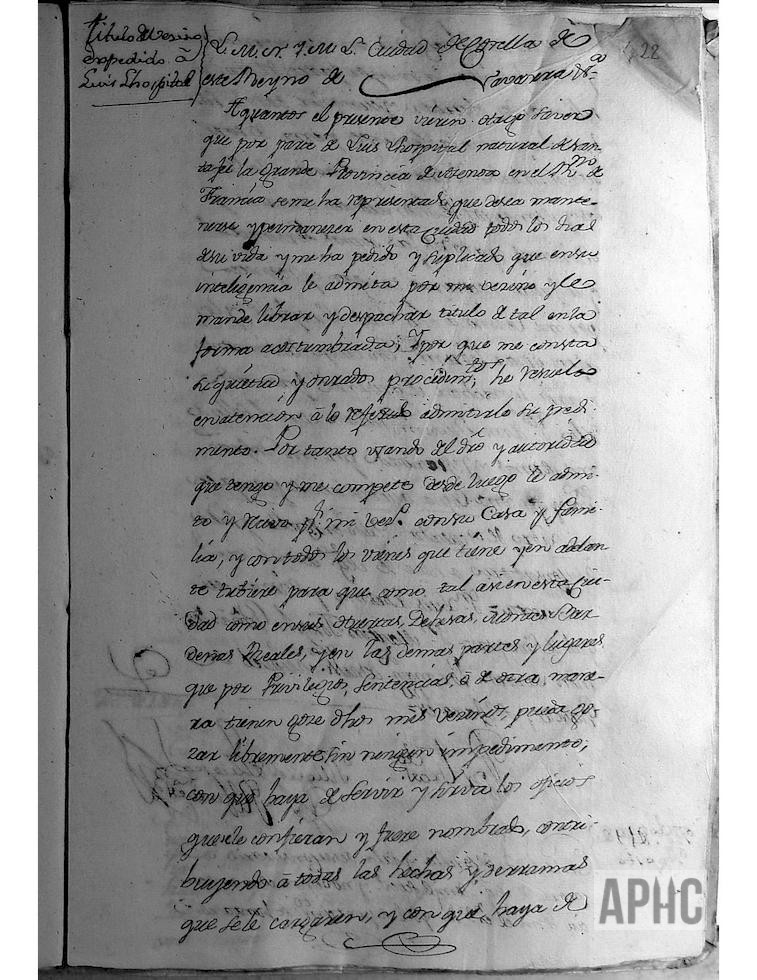 Titulo de Vezino
expedido â
Luis Lhospital
La M. N. Y. M. L. Ciudad de Corella de
este Reyno de Navarra &ª
422
A quantos el presente vieren. Hago saver
que por parte de Luis Lhospital natural de San-
ta fee la Grande Provincia de Agenois en el R.no de
Francia se me ha representado que desea mante-
nerse y permanezer en esta Ciudad todos los dias
de su vida y me ha pedido y suplicado que en su
inteligencia le admita por mi vezino y le
mande librar y despachar titulo de tal en la
forma acostumbrada; Y por que me consta
su quietud y onrados procedim.tos, he resuelto
en atencion â lo referido admitirlo su pedi-
mento. Por tanto usando del dro y autoridad
que tengo y me compete desde luego le admi-
to y recivo p.r mi vez.o con su Casa y fami-
lia, y con todos los vienes que tiene y en adelan-
te tubiere para que como tal asi en esta Ciu-
dad como en sus Huertas, Dehesas, Montes Bar-
denas Reales, y en las demas partes y lugares
que por Privilexios, Sentencias, ô de otra mane-
ra tienen goze dhos mis vezinos, pueda go-
zar libremente sin ningun impedimento,
con que haya de servir y sirva los oficios
que se le confieran y fuere nombrado, contri-
buyendo â todas las hechas y derramas
que se le cargaren, y con que haya de
APHC